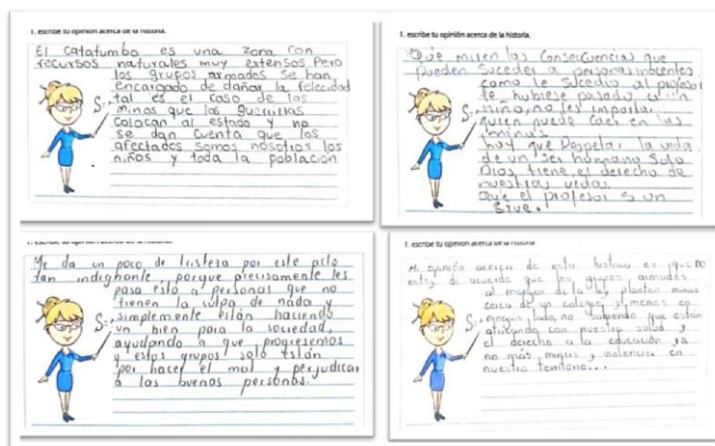 1. escribe tu opinión acerca de la historia.
El Catatumbo es una zona con
recursos naturales muy extensos Pero
los grupos armados se han
encargado de dañar la felicidad
tal es el caso de las
minas que las guerrillas
colocan al estado y no
se dan cuenta que los
afectados somos nosotros los
niños y toda la población
1. escribe tu opinión acerca de la historia.
Que miren las Consecuencias que
pueden Suceder a personas inocentes
como le Sucedio al profesor
le hubiese pasado a un
niño, no les importa
quien puede caer en las
minas
hay que Respetar la vida
de un ser humano Solo
Dios tiene el derecho de
nuestras vidas.
Que el profesor es un
Me da un poco de tristeza por este acto
tan indignante, porque precisamente les
pasa esto a personas que no
tienen la culpa de nada y
simplemente están haciendo
un bien para la sociedad,
ayudando a que progresemos
y estos grupos solo están
por hacer el mal y perjudicar
a las buenas personas.
1. escribe tu opinión acerca de la historia.
Mi opinión acerca de esta historia es que no
estoy de acuerdo que los grupos armados
al margen de la ley planten minas
cerca de un colegio y menos en
ningun lado, no sabiendo que están
atentando con nuestra salud y
el derecho a la educación ya
no más minas y violencia en
nuestro territorio...